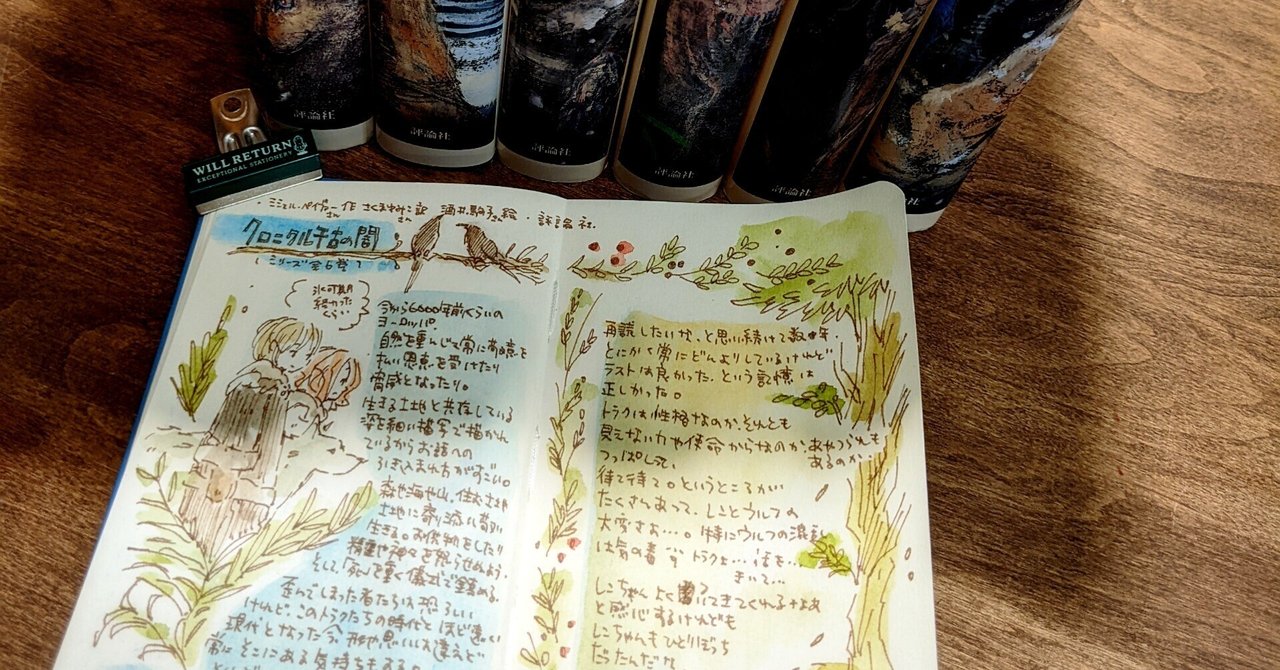 評論社
評論社
評論社
評論社
評論社
評論社
WILL RETURN
EXCEPTIONAL STATIONERY
・ミシェル・ペイヴァーさん作 さくまゆみこさん訳 酒井駒子さん絵・評論社
クロニクル千古の闇
(シリーズ全6巻)
氷河期
終わった
くらい
今から6000年前くらいの
ヨーロッパ。
自然を重んじて常に敬意を
払い恩恵を受けたり
脅威となったり。
生きる土地と共存している
姿を細い描写で描かれ
ているからお話への
引き込まれ方がすごい。
森や海や山、住む土地
土地に寄り添い
生きる。お供物をしたり
精霊や神々を怒らせぬよう、
そして、重く儀式で鎮める。
歪んでしまった者たちは恐ろしい
けれど、このトラクたちの時代とほど遠い
現代となった今、形や思いは違えど
常にそこにある気持ちもする。
再読したいな、と思い続けて数年。
とにかく常にどんよりしているけれど
ラストは良かった、という記憶は
正しかった。
トラクは性格なのか、それとも
見えない力や使命からなのか、あやうくも
あるのか、
つっぱしって、
待て待て。というところが
たくさんあって、レンとウルフの
大変さよ…。特にウルフの混乱
は気の毒 トラクよ…話を…
きいて…
レンちゃんよくついてきてくれるなぁ
と感心するけれども
レンちゃんもひとりぼっち
だったんだね